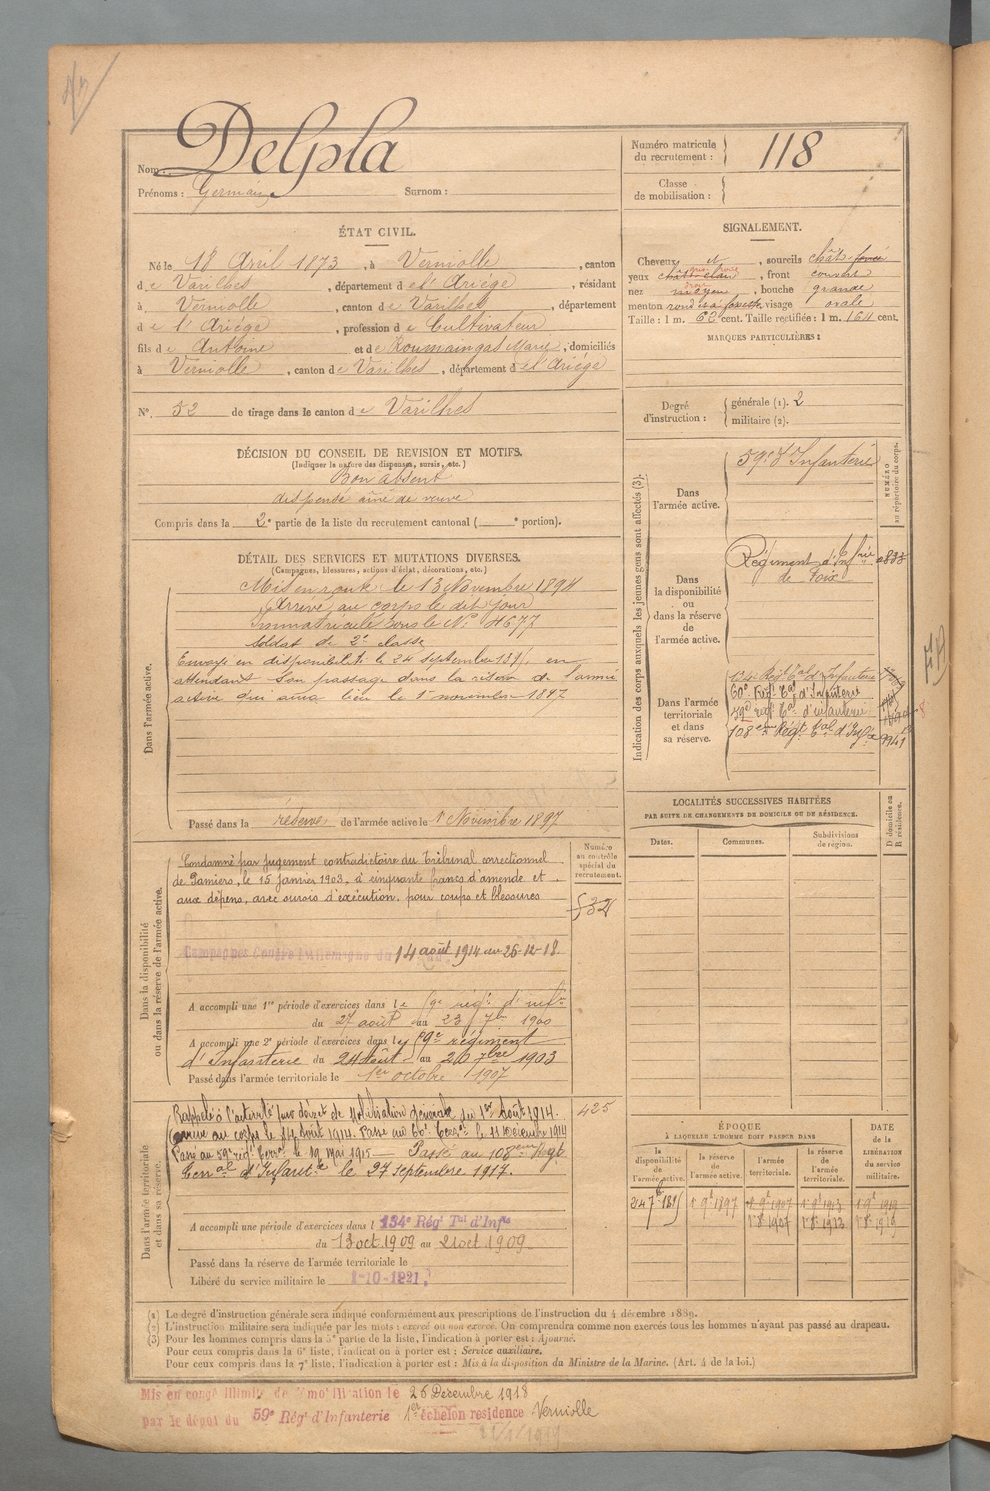 Nom : Delpla
Prénoms : Germain Surnom :
Numéro matricule du recrutement : 118
Classe de mobilisation :
ÉTAT CIVIL.
Né le 18 Avril 1873, à Verniolle, canton
de Varilhes, département de l'Ariége, résidant
à Verniolle, canton de Varilhes, département
de l'Ariége, profession de Cultivateur
fils de Antoine et de Roumaingas Marie, domiciliés
à Verniolle, canton de Varilhes, département de l'Ariége
N° 52 de tirage dans le canton de Varilhes
SIGNALEMENT.
Cheveux et, sourcils chât. foncé
yeux, front couvert
nez moyen, bouche grande
menton rond, visage ovale
Taille : 1 m. 62 cent. Taille rectifiée : 1 m. 64 cent.
MARQUES PARTICULIÈRES :
Degré d'instruction : générale (1). 2
militaire (2).
DÉCISION DU CONSEIL DE REVISION ET MOTIFS.
(Indiquer la nature des dispenses, sursis, etc.)
Bon absent
dispensé ainé de veuve
Compris dans la 2e partie de la liste du recrutement cantonal ( e portion).
DÉTAIL DES SERVICES ET MUTATIONS DIVERSES.
(Campagnes, blessures, actions d'éclat, décorations, etc.)
Dans l'armée active.
Mis en route le 13 Novembre 1894
Arrivé au corps le dit jour
Immatriculé sous le N° 4677
Soldat de 2e classe
Envoyé en disponibilité le 24 septembre 189, en
attendant son passage dans la réserve de l'armée
active qui aura lieu le 1er novembre 1897
Passé dans la réserve de l'armée active le 1er Novembre 1897
Indication des corps auxquels les jeunes gens sont affectés (3).
NUMÉRO au répertoire du corps.
Dans l'armée active.
59e d'Infanterie
Dans la disponibilité ou dans la réserve de l'armée active.
Régiment d'Infrie
de Foix
Dans l'armée territoriale et dans sa réserve.
134e Régt Tal d'Infanterie
60e Régt Tal d'Infanterie
59e régt Tal d'infanterie
108eme Régt Tal d'Infie 9941
LOCALITÉS SUCCESSIVES HABITÉES
PAR SUITE DE CHANGEMENTS DE DOMICILE OU DE RÉSIDENCE.
Dates. Communes. Subdivisions de région.
D domicile ou R résidence.
Dans la disponibilité ou dans la réserve de l'armée active.
Numéro au contrôle spécial du recrutement.
Condamné par jugement contradictoire du Tribunal correctionnel
de Pamiers, le 15 janvier 1903, à cinquante francs d'amende et
aux dépens, avec sursis d'exécution, pour coups et blessures
Campagnes Contre l'Allemagne du 14 août 1914 au 26-12-18.
A accompli une 1re période d'exercices dans le régt d'infie
du 27 août au 23 7bre 1900
A accompli une 2e période d'exercices dans le régiment
d'Infanterie du 24 Août au 20 7bre 1903
Passé dans l'armée territoriale le 1er octobre 1907
Dans l'armée territoriale et dans sa réserve.
425
Rappelé à l'activité par décret de Mobilisation Générale du 1er Août 1914.
Arrivé au corps le 14 août 1914. Passé au 60e Terral le 11 Décembre 1914
Passé au 59e régt Terral le 19 mai 1915 — Passé au 108eme Régt
Terral d'Infantie le 27 septembre 1917.
A accompli une période d'exercices dans l 134e Régt Tal d'Infie
du 13 oct 1909 au 21 oct 1909
Passé dans la réserve de l'armée territoriale le
Libéré du service militaire le 1-10-1921
ÉPOQUE
À LAQUELLE L'HOMME DOIT PASSER DANS
DATE de la LIBÉRATION du service militaire.
la disponibilité de l'armée active. la réserve de l'armée active. l'armée territoriale. la réserve de l'armée territoriale.
(1) Le degré d'instruction générale sera indiqué conformément aux prescriptions de l'instruction du 4 décembre 1889.
(2) L'instruction militaire sera indiquée par les mots : exercé ou non exercé. On comprendra comme non exercés tous les hommes n'ayant pas passé au drapeau.
(3) Pour les hommes compris dans la 5e partie de la liste, l'indication à porter est : Ajourné.
Pour ceux compris dans la 6e liste, l'indication à porter est : Service auxiliaire.
Pour ceux compris dans la 7e liste, l'indication à porter est : Mis à la disposition du Ministre de la Marine. (Art. 4 de la loi.)
Mis en congé illimité de mobilisation le 26 Decembre 1918
par le dépôt du 59e Régt d'Infanterie 1er échelon residence Verniolle